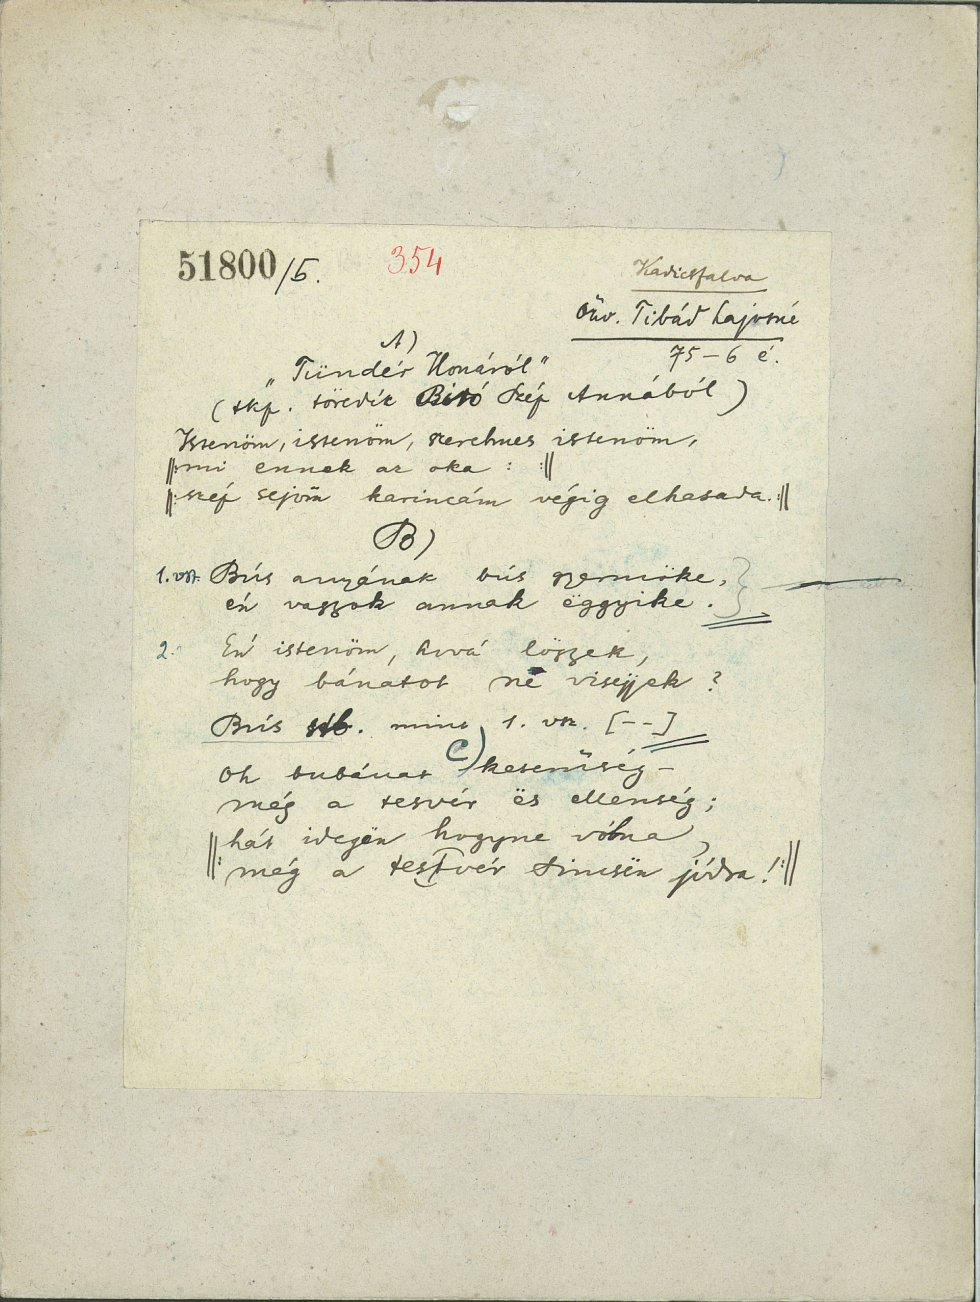 51800/5.
354
Kadicsfalva
Özv. Tibád Lajosné
75–6 é.
A)
„Tündér Ilonáról"
(tkp. töredék Bíró Szép Annából)
Istenöm, istenöm, szerelmes istenöm,
‖: mi ennek az oka : :‖
‖: szép sejöm karincám végig elhasada. :‖
B)
1. vsz. Bús anyának bús gyermöke,
én vagyok annak ëggyike.
2. Én istenöm, hová lögyek,
hogy bánatot në visejjek?
Bús stb. mint 1. vsz. [--]
C)
Oh bubánat, keserűség –
még a tesvér ës ellenség;
‖: hát idegën hogyne vóna,
még a testvér sincsën jódra! :‖